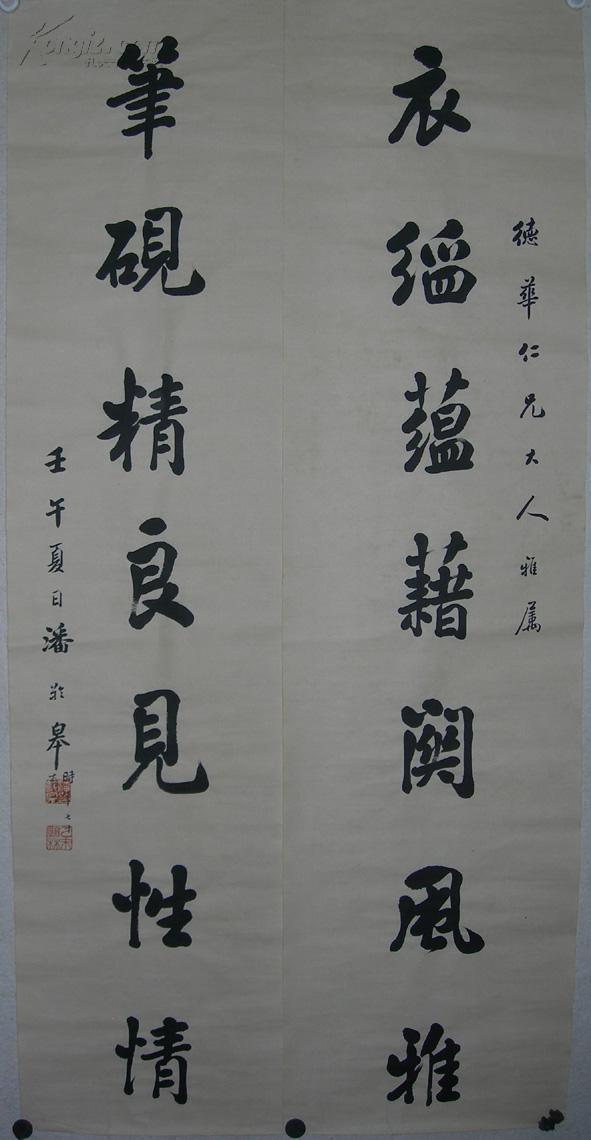 德華仁兄大人雅属
衣縚蘊藉關風雅
筆硯精良見性情
壬午夏日潘齡皋